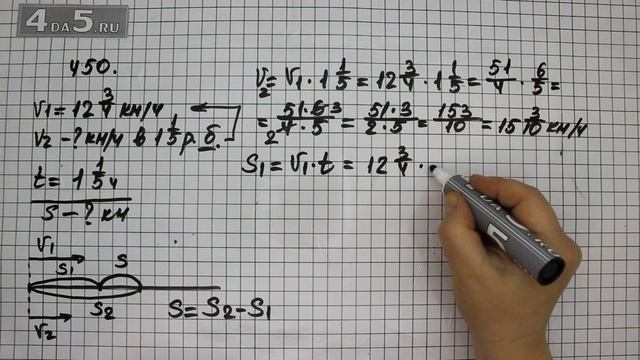 4DA5.RU
450.
V1 = 12 3/4 км/ч
V2 - ? км/ч в 1 1/5 р. б.
t = 1 1/5 ч
S - ? км
V1
S1 S
S2
V2
S = S2 - S1
V2 = V1 · 1 1/5 = 12 3/4 · 1 1/5 = 51/4 · 6/5 =
= 51·6 3/2 4·5 = 51·3/2·5 = 153/10 = 15 3/10 км/ч
S1 = V1 · t = 12 3/4 ·
5